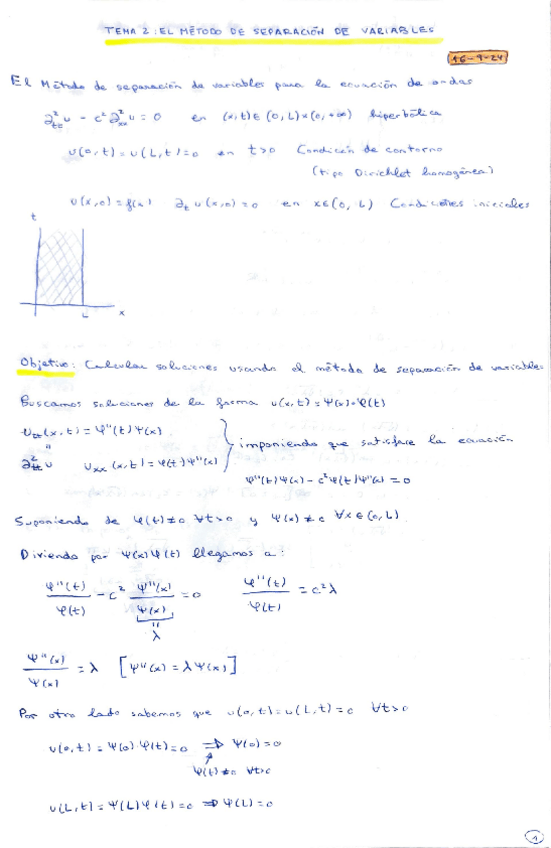 TEMA 2: EL MÉTODO DE SEPARACIÓN DE VARIABLES
16-9-24
El Método de separación de variables para la ecuación de ondas
∂²ₜₜ u - c² ∂²ₓₓ u = 0 en (x,t) ∈ (0, L) × (0, +∞) hiperbólica
u(0,t) = u(L,t) = 0 en t>0 Condición de contorno
(tipo Dirichlet homogénea)
u(x,0) = f(x) ∂ₜ u(x,0) = 0 en x∈(0, L) Condiciones iniciales
t
L x
Objetivo: Calcular soluciones usando el método de separación de variables
Buscamos soluciones de la forma u(x,t) = Ψ(x)·φ(t)
uₜₜ(x,t) = φ''(t) Ψ(x)
"
∂²ₜₜ u uₓₓ(x,t) = φ(t) Ψ''(x) } imponiendo que satisface la ecuación
φ''(t) Ψ(x) - c² φ(t) Ψ''(x) = 0
Suponiendo de φ(t) ≠ 0 ∀t>0 y Ψ(x) ≠ 0 ∀x ∈ (0, L)
Diviendo por Ψ(x) φ(t) llegamos a:
φ''(t)/φ(t) - c² Ψ''(x)/Ψ(x) = 0 φ''(t)/φ(t) = c² λ
"
λ
Ψ''(x)/Ψ(x) = λ [Ψ''(x) = λ Ψ(x)]
Por otro lado sabemos que u(0,t) = u(L,t) = 0 ∀t>0
u(0,t) = Ψ(0)·φ(t) = 0 ⇒ Ψ(0) = 0
↑
φ(t) ≠ 0 ∀t>0
u(L,t) = Ψ(L) φ(t) = 0 ⇒ Ψ(L) = 0
1